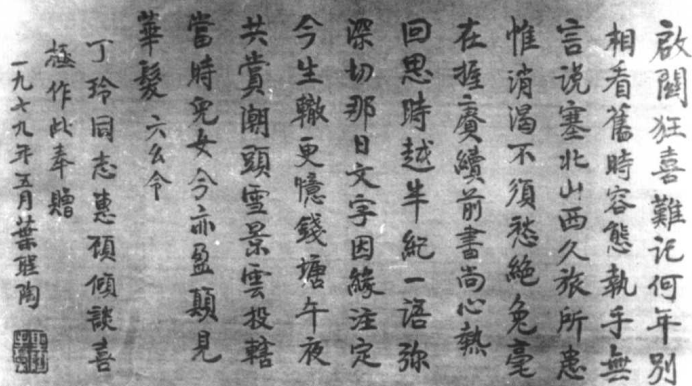 啟關狂喜難記何年別
相看舊時容態執手無
言説塞北山西久旅所患
惟消渴不須愁絶兔毫
在握賡續前書尚心熱
回思時越半紀一语弥
深切那日文字因緣注定
今生轍更憶錢塘午夜
共賞潮頭雪景雲投轄
當時兒女今亦盈顛見
華髮 六幺令
丁玲同志惠顧傾談喜
極作此奉贈
一九七九年五月葉聖陶